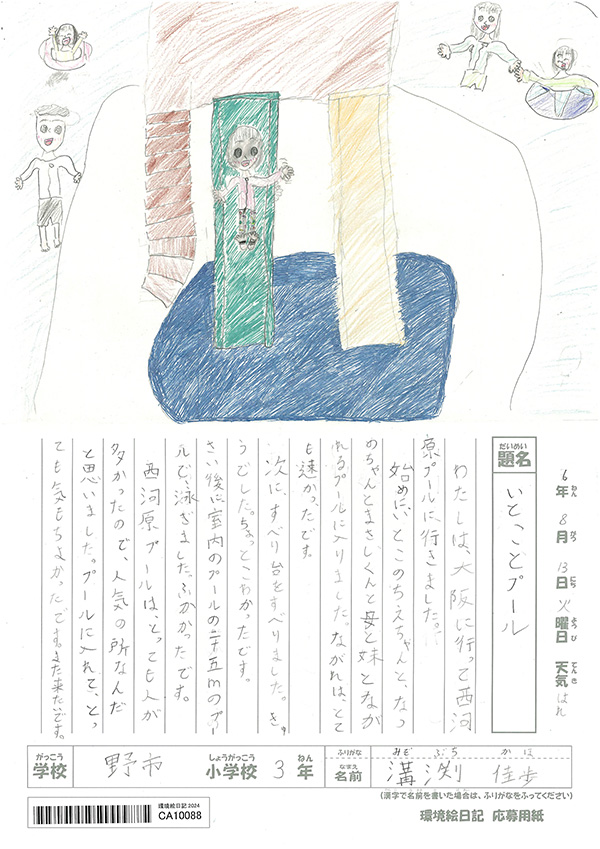 6年 8月 13日 火曜日 天気 はれ
ねん がつ にち ようび てんき
だいめい
題名 いとことプール
わたしは、大阪に行って西河
原プールに行きました。
始めに、いとこのちえちゃんと、なつ
めちゃんとまさしくんと母と妹となが
れるプールに入りました。ながれは、とて
も速かったです。
次に、すべり台をすべりました。きゅ
うでした。ちょっとこわかったです。
さい後に室内のプールの二十五mのプー
ルで、泳ぎました。ふかかったです。
西河原プールは、とっても人が
多かったので、人気の所なんだ
と思いました。プールに入れて、とっ
ても気もちよかったです。また来たいです。
がっこう しょうがっこう ねん
学校 野市 小学校 3年
ふりがな みぞ ぶち かほ
なまえ
名前 溝渕 佳歩
(漢字で名前を書いた場合は、ふりがなをふってください)
環境絵日記 応募用紙
環境絵日記 2024
CA10088